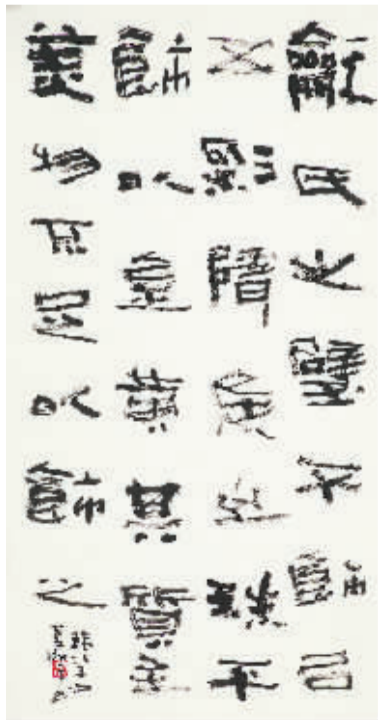 龢氏之璧不飾以
五彩隋侯之珠不
飾以銀黃其質至
美物不足以飾之